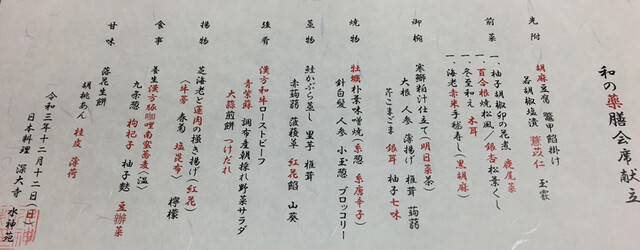 和の薬膳会席献立
先附
胡麻豆腐 鼈甲餡掛け 玉霰
若胡椒塩漬 薏苡仁
前菜
一、柚子胡椒卯の花煮 鹿尾菜
一、百合根焼松風/銀杏松葉くし
一、冬至和え 木耳
一、海老赤米手毬寿し(黒胡麻)
御椀
寒鰤粕汁仕立て(明日葉茶)
大根 人参 薄揚げ 椎茸 蒟蒻
芥こまごま 銀耳 柚子 七味
焼物
牡蠣朴葉味噌焼(糸葱 糸唐辛子)
針白髪 人参 小玉葱 ブロッコリー
蒸物
鮭かぶら蒸し 里芋 椎茸
赤蒟蒻 菠薐草 紅花餡 山葵
強肴
漢方和牛ローストビーフ
青紫蘇 調布産朝採れ野菜サラダ
大蒜煎餅 つけだれ
揚物
芝海老と蓮肉の掻き揚げ(紅花)
(牛蒡 春菊 塩昆布) 檸檬
食事
養生漢方版咖哩南蛮蕎麦(温)
九条葱 枸杞子 柚子麩 豆瓣菜
甘味
落花生餅
胡桃あん 桂皮 薄荷
令和三年十二月十二日(日)
日本料理 深大寺 水神苑